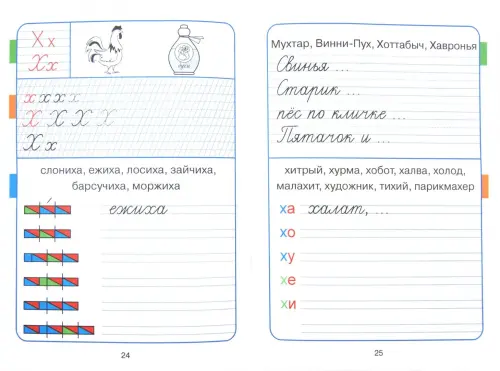 Х х
Х х
х х х х
Х Х Х Х
Х х
слониха, ежиха, лосиха, зайчиха,
барсучиха, моржиха
ежиха
24
Мухтар, Винни-Пух, Хоттабыч, Хавронья
Свинья ...
Старик ...
пёс по кличке ...
Пятачок и ...
хитрый, хурма, хобот, халва, холод,
малахит, художник, тихий, парикмахер
ха халат, ...
хо
ху
хе
хи
25